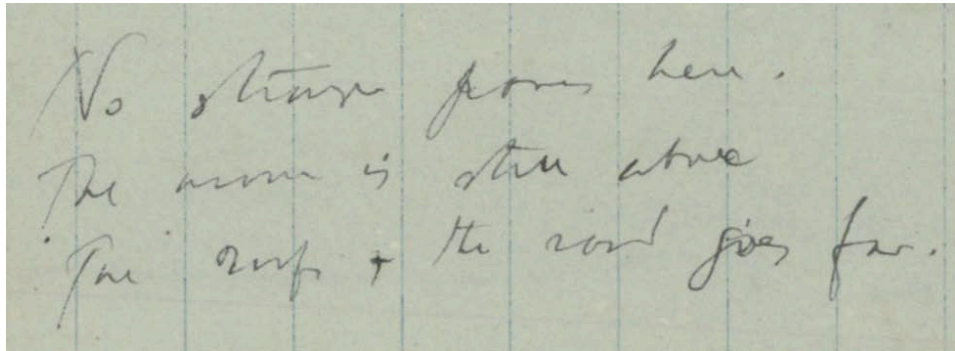 No strange   here.
The moon is still above
The roofs + the road goes far.